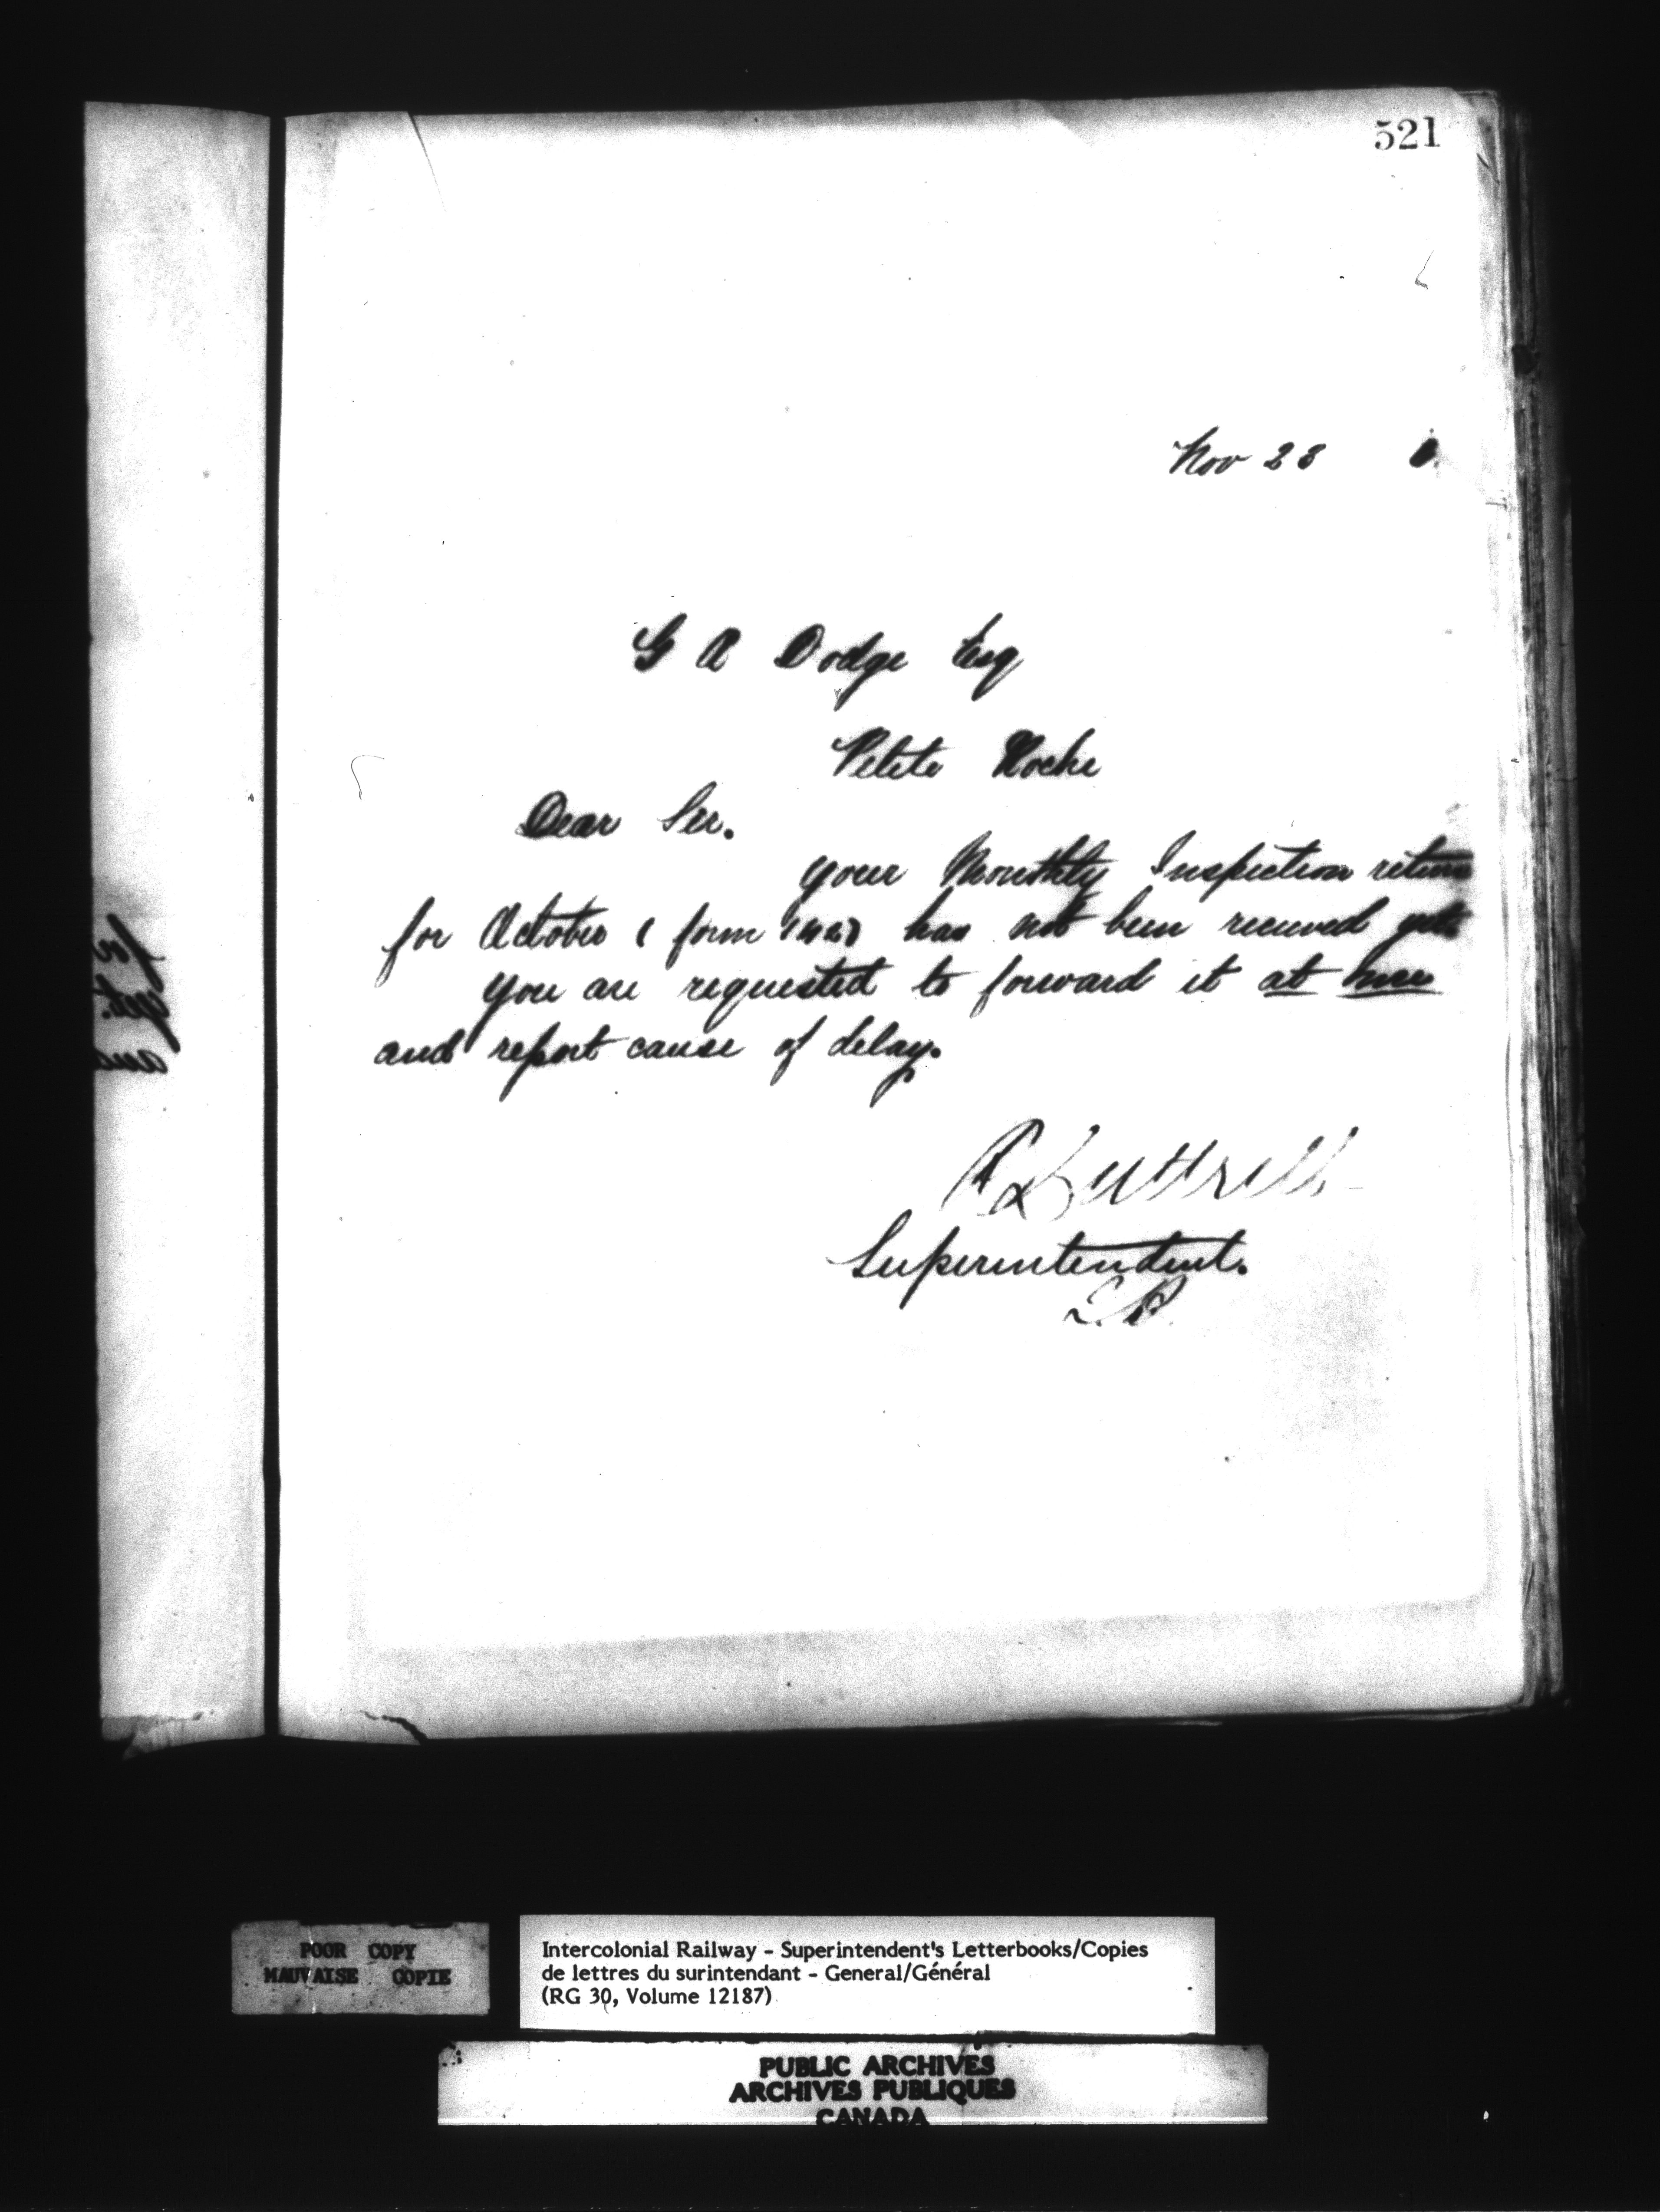 521
Nov 28
G A Dodge Esq
Petite Roche
Dear Sir.
Your Monthly Inspection return
for October (form 142) has not been received yet
You are requested to forward it at once
and report cause of delay.
A Luttrell
Superintendent.
POOR COPY
MAUVAISE COPIE
Intercolonial Railway - Superintendent's Letterbooks/Copies
de lettres du surintendant - General/Général
(RG 30, Volume 12187)
PUBLIC ARCHIVES
ARCHIVES PUBLIQUES
CANADA